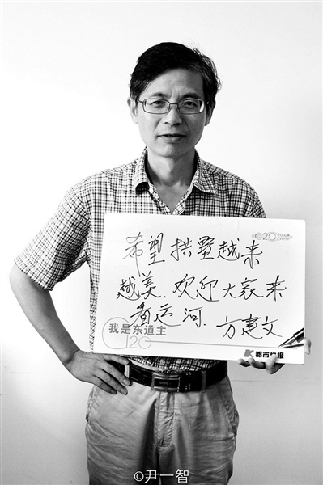 希望拱墅越来
越美.欢迎大家来
看运河.方惠文
我是东道主
都市快报
©尹一智